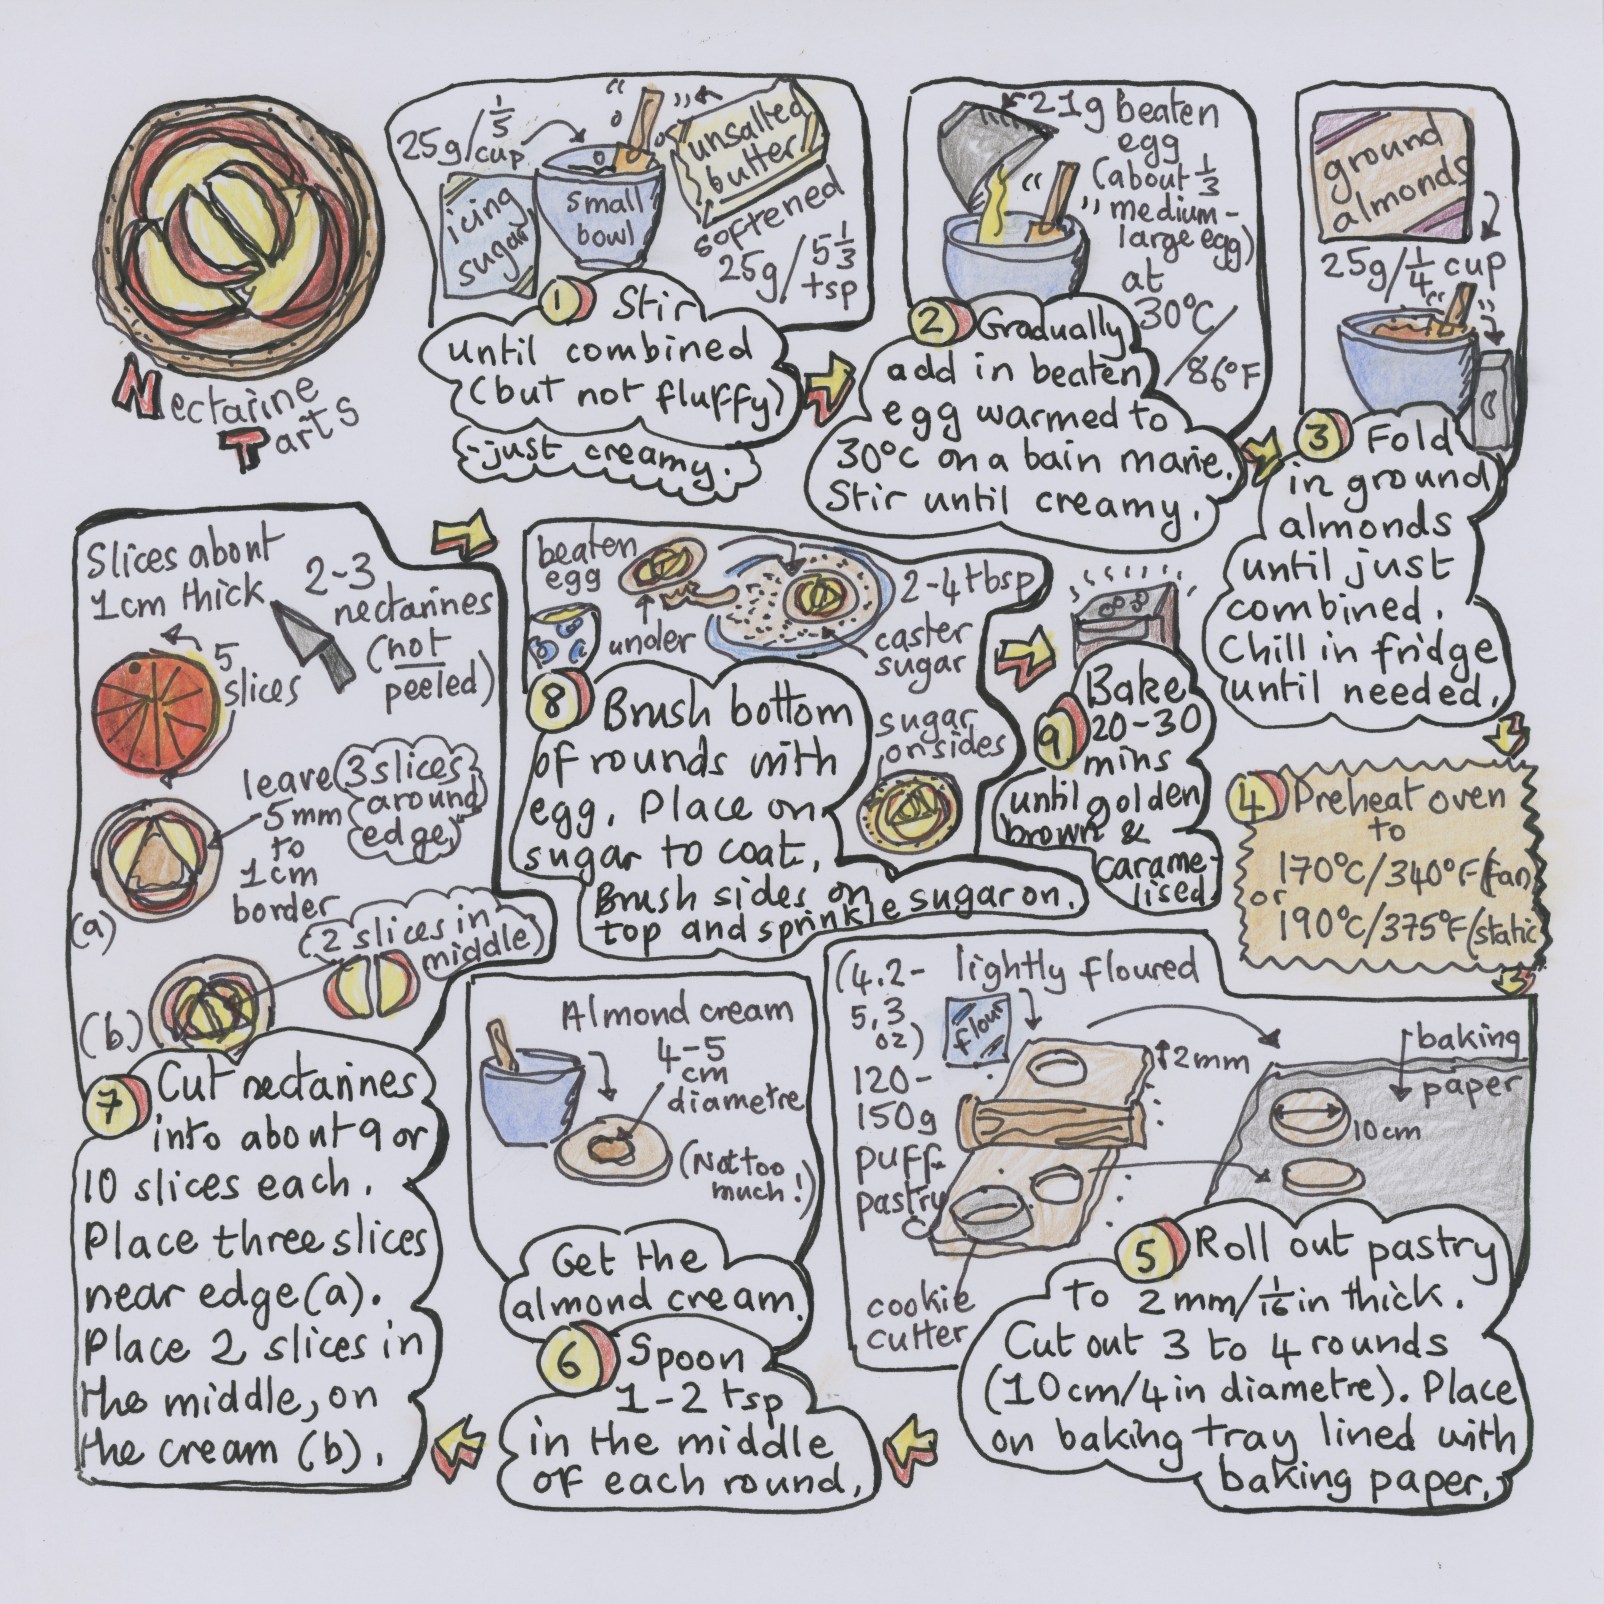 Nectarine
Tarts
25g/1/5
cup
icing
sugar
small
bowl
unsalted
butter
softened
25g/5 1/3
tsp
1 Stir
until combined
(but not fluffy)
-just creamy.
21g beaten
egg
(about 1/3
medium-
large egg)
at
30°C/
86°F
2 Gradually
add in beaten
egg warmed to
30°C on a bain marie.
Stir until creamy.
ground
almonds
25g/1/4 cup
3 Fold
in ground
almonds
until just
combined.
Chill in fridge
until needed.
4 Preheat oven
to
170°C/340°F(fan)
or
190°C/375°F(static)
(4.2-
5.3
oz)
120-
150g
puff
pastry
lightly floured
flour
2mm
baking
paper
10cm
cookie
cutter
5 Roll out pastry
to 2mm/1/16 in thick.
Cut out 3 to 4 rounds
(10cm/4in diametre). Place
on baking tray lined with
baking paper.
Almond cream
4-5
cm
diametre
(Not too
much!)
Get the
almond cream.
6 Spoon
1-2 tsp
in the middle
of each round.
Slices about
1cm thick
2-3
nectarines
(not
peeled)
5
slices
leave
5mm
to
1cm
border
3 slices
around
edge
(a)
(2 slices in
middle)
(b)
7 Cut nectarines
into about 9 or
10 slices each.
Place three slices
near edge (a).
Place 2 slices in
the middle, on
the cream (b).
beaten
egg
under
2-4 tbsp
caster
sugar
sugar
on sides
8 Brush bottom
of rounds with
egg. Place on
sugar to coat.
Brush sides on
top and sprinkle sugar on.
9 Bake
20-30
mins
until golden
brown &
carame-
lised.